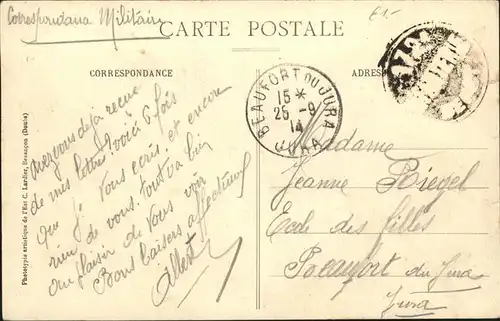 Correspondance Militaire
€1.-
CARTE POSTALE
CORRESPONDANCE
ADRES
BEAUFORT DU JURA
15 *
25 - 9
14
JURA
Avez vous déjà reçue
de mes lettres voici 6 fois
que je vous écris, et encore
rien de vous. Tout va bien
au plaisir de vous voir
Bons baisers affectueux
Albert
Madame
Jeanne Riegel
Ecole des filles
Beaufort du Jura
Jura
Phototypie artistique de l'Est C. Lardier, Besançon (Doubs)